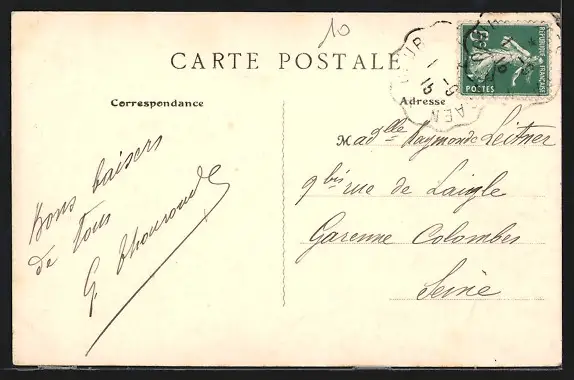 10
CARTE POSTALE
REPUBLIQUE FRANÇAISE
POSTES
Correspondance
Adresse
Bons baisers
de tous
G.
Madelle Raymonde Leitner
9 bis rue de Laigle
Garenne Colombes
Seine